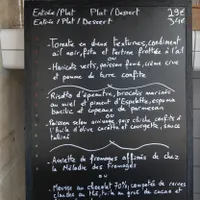 Entrée/Plat   Plat/Dessert   29€
Entrée/Plat/Dessert   34€
Tomate en deux textures, condiment
ail noir, feta et tartine frottée à l'ail
ou
Haricots verts, poisson fumé, crème crue
et pomme de terre confite
Risotto d'épeautre, brocolis marinés
au miel et piment d'Espelette, espuma
basilic et copeaux de parmesan
ou
Poisson selon arrivage,
l'huile d'olive carotte et courgette, sauce
Assiette de fromages affinés de chez
la Mélodie des Fromages
ou
Mousse au chocolat 70%, compotée de reines
claudes au thé, tuile au grué de cacao et